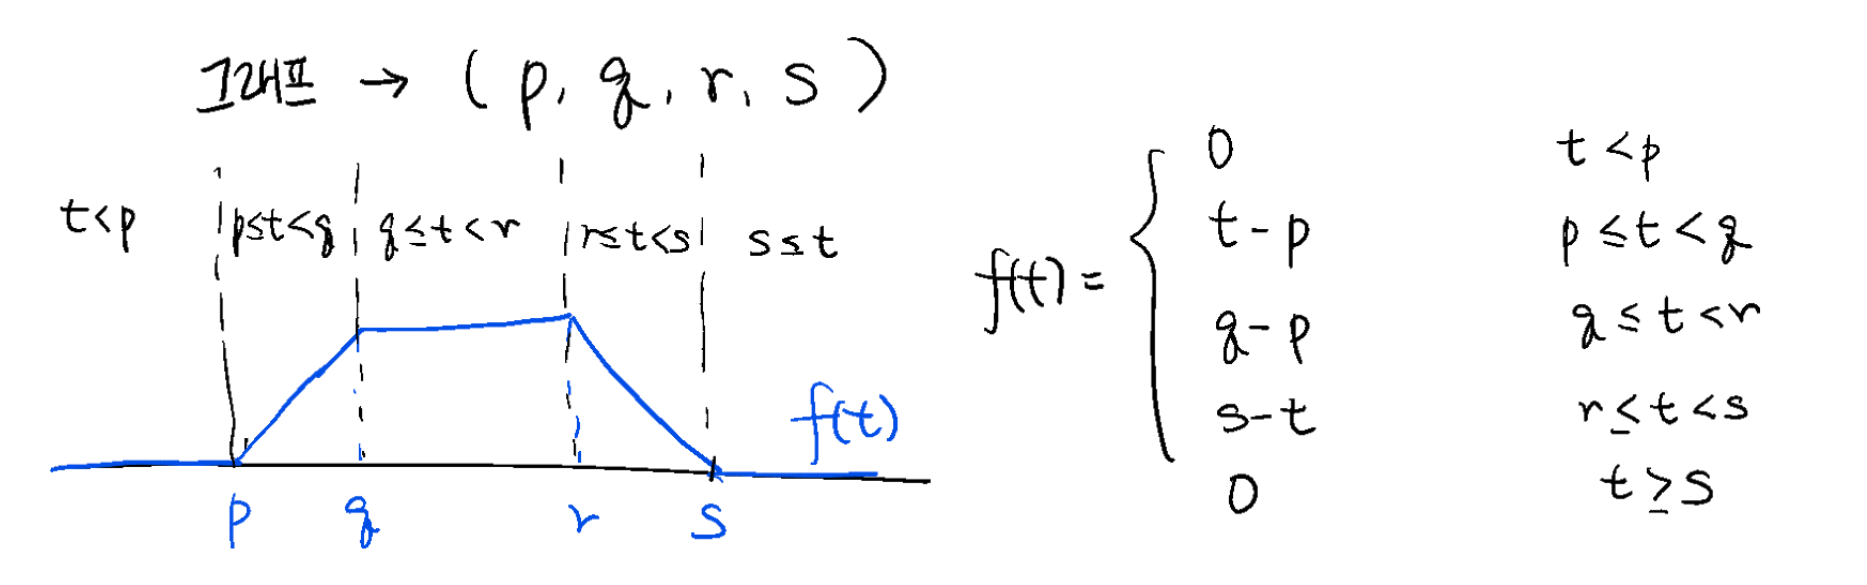 그래프 → (p, q, r, s)
t<p p≤t<q q≤t<r r≤t<s s≤t
f(t)
p q r s
f(t) =
0 t<p
t-p p≤t<q
q-p q≤t<r
s-t r≤t<s
0 t≥s